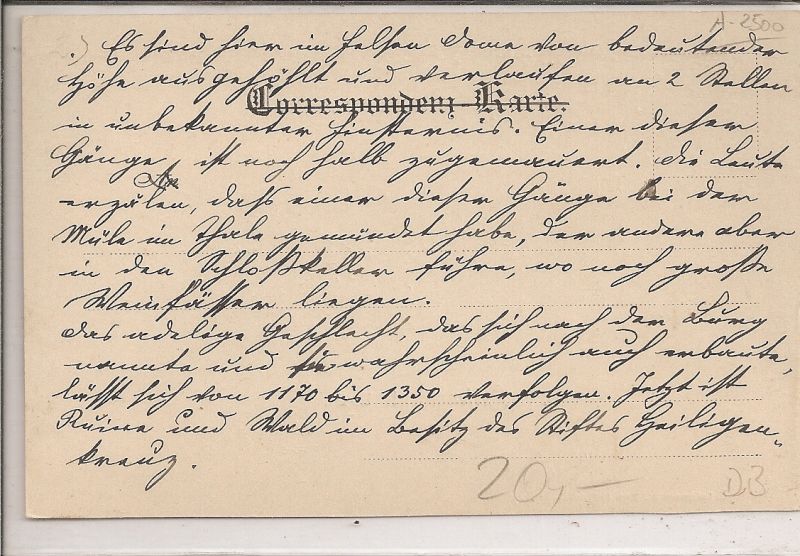 A-2500
Es sind hier im Felsen Dome von bedeutender
Höhe ausgehöhlt und verlaufen an 2 Stellen
Correspondenz-Karte.
in unbekannter Finsternis. Einer dieser
Gänge ist noch halb zugemauert. Die Leute
erzälen, daß einer dieser Gänge bei der
Müle im Thale gemündet habe, der andere aber
in den Schloßkeller führe, wo noch große
Weinfässer liegen.
Das adelige Geschlecht, das sich nach der Burg
nannte und sie wahrscheinlich auch erbaute,
lässt sich von 1170 bis 1350 verfolgen. Jetzt ist
Ruine und Wald im Besitz des Stiftes Heiligen-
kreuz.
20,-
D.3